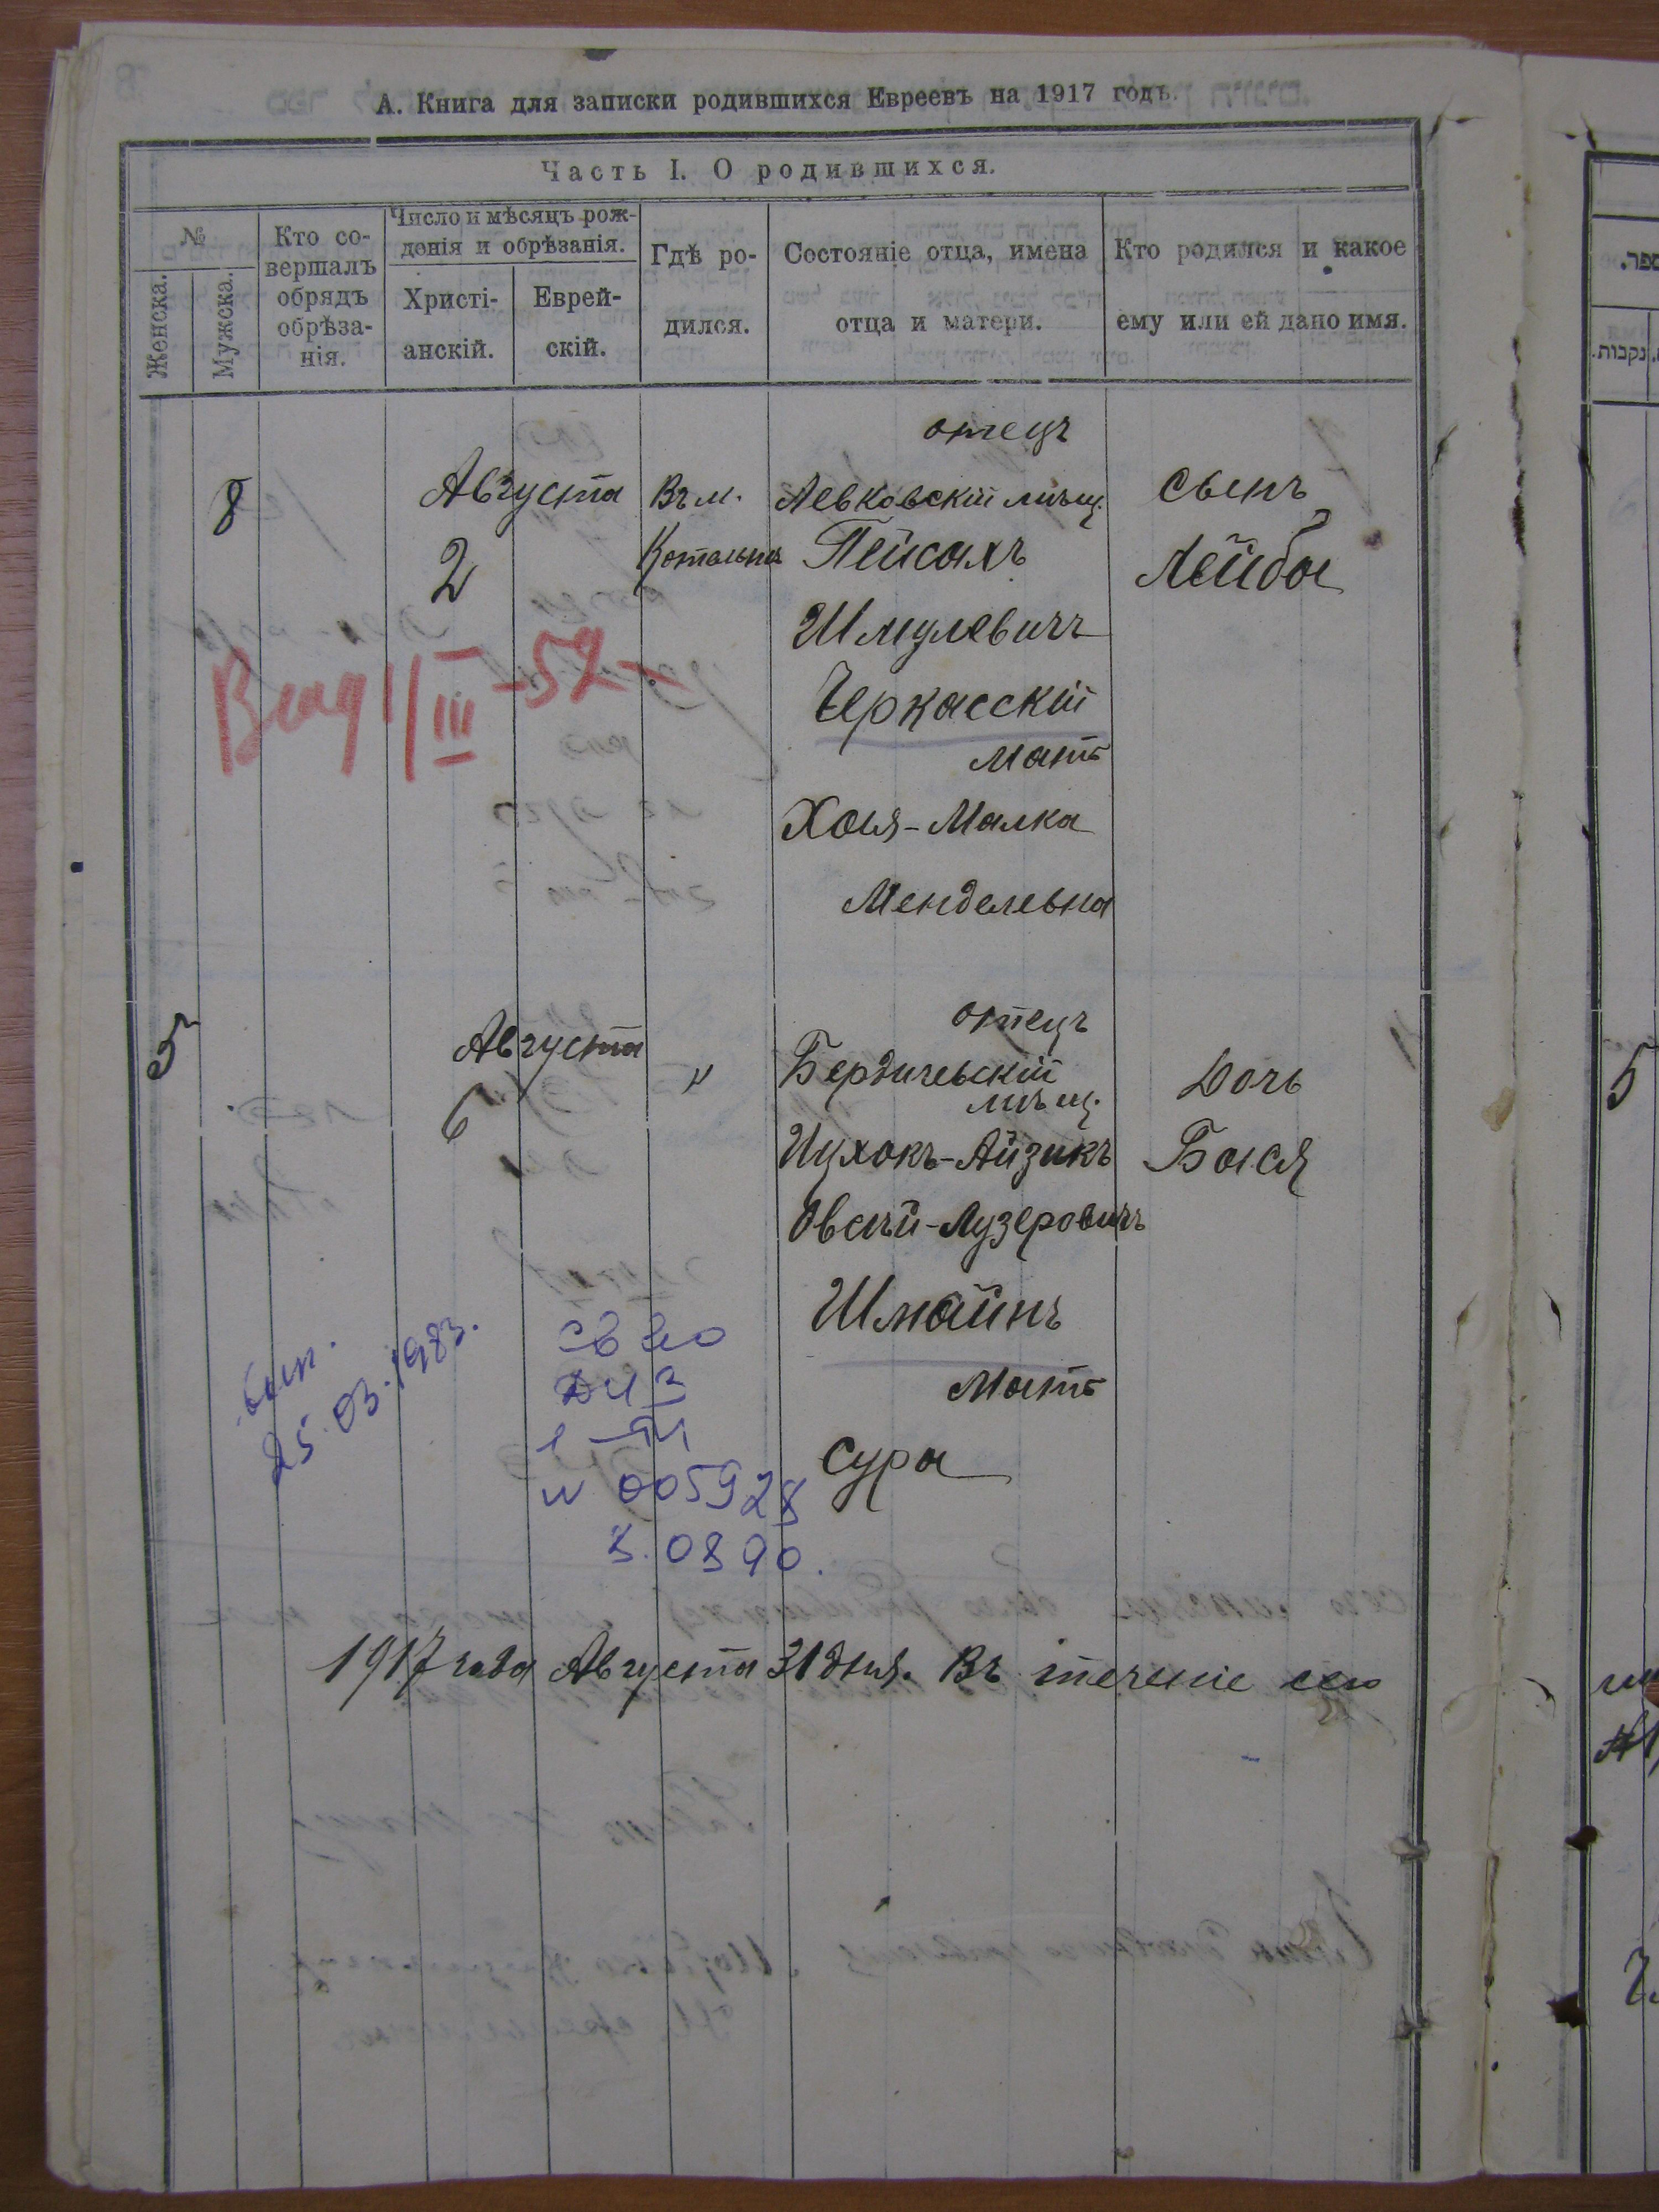 А. Книга для записки родившихся Евреевъ на 1917 годъ.
Часть I. О родившихся.
№
Женска.
Мужска.
Кто со-
вершалъ
обрядъ
обрѣза-
нія.
Число и мѣсяцъ рож-
денія и обрѣзанія.
Христі-
анскій.
Еврей-
скій.
Гдѣ ро-
дился.
Состояніе отца, имена
отца и матери.
Кто родился и какое
ему или ей дано имя.
8
Августа
2
Въ м.
Котельна
отецъ
Левковскій мѣщ.
Пейсахъ
Шмулевичъ
Черкасскій
мать
Хая-Малка
Менделевна
сынъ
Лейба
III 52
5
Августа
6
"
отецъ
Бердичевскій
мѣщ.
Ицхокъ-Айзикъ
Овсій-Лузеровичъ
Шмайнъ
мать
Сура
Дочь
Бася
25.03.1983.
св во
N 005928
3.0890.
1917 года Августа 31 дня. Въ теченіе сего
ספר.
נקבות.
5